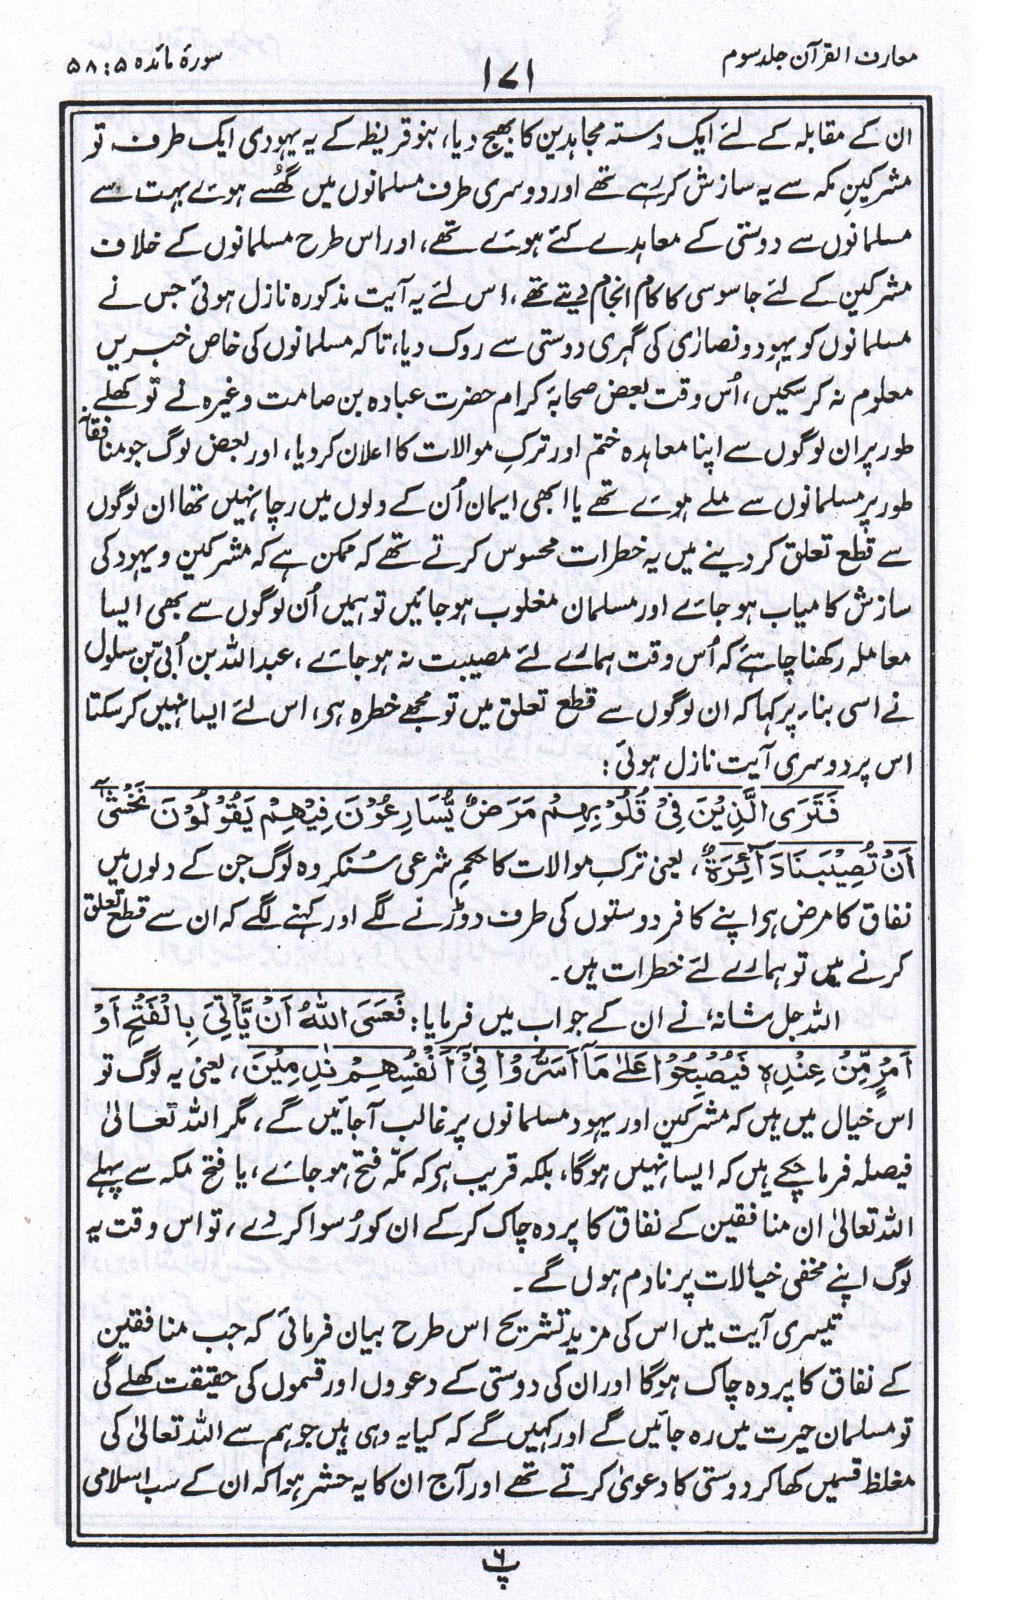 معارف القرآن جلد سوم
۱۷۱
سورۂ مائدہ ۵ : ۵۸
ان کے مقابلہ کے لئے ایک دستہ مجاہدین کا بھیج دیا، بنو قریظہ کے یہ یہودی ایک طرف تو
مشرکینِ مکہ سے یہ سازش کر رہے تھے اور دوسری طرف مسلمانوں میں گھُسے ہوئے بہت سے
مسلمانوں سے دوستی کے معاہدے کئے ہوئے تھے، اور اس طرح مسلمانوں کے خلاف
مشرکین کے لئے جاسوسی کا کام انجام دیتے تھے، اس لئے یہ آیت مذکورہ نازل ہوئی جس نے
مسلمانوں کو یہود و نصارٰی کی گہری دوستی سے روک دیا، تاکہ مسلمانوں کی خاص خبریں
معلوم نہ کرسکیں، اُس وقت بعض صحابۂ کرام حضرت عبادہ بن صامت وغیرہ نے تو کھلے
طور پر ان لوگوں سے اپنا معاہدہ ختم اور ترکِ موالات کا اعلان کردیا، اور بعض لوگ جو منافقانہ
طور پر مسلمانوں سے ملے ہوئے تھے یا ابھی ایمان اُن کے دلوں میں رچا نہیں تھا ان لوگوں
سے قطع تعلق کر دینے میں یہ خطرات محسوس کرتے تھے کہ ممکن ہے کہ مشرکین و یہود کی
سازش کامیاب ہوجائے اور مسلمان مغلوب ہوجائیں تو ہمیں اُن لوگوں سے بھی ایسا
معاملہ رکھنا چاہئے کہ اُس وقت ہمارے لئے مصیبت نہ ہوجائے، عبداللہ بن اُبیّ بن سلول
نے اسی بناء پر کہا کہ ان لوگوں سے قطع تعلق میں تو مجھے خطرہ ہو، اس لئے ایسا نہیں کرسکتا
اس پر دوسری آیت نازل ہوئی:
فَتَرَى الَّذِيْنَ فِيْ قُلُوْبِهِمْ مَرَضٌ يُّسَارِعُوْنَ فِيْهِمْ يَقُوْلُوْنَ نَخْشٰٓى
اَنْ تُصِيْبَنَا دَآئِرَةٌ، یعنی ترکِ موالات کا حکمِ شرعی سُنکر وہ لوگ جن کے دلوں میں
نفاق کا مرض ہو اپنے کافر دوستوں کی طرف دوڑنے لگے اور کہنے لگے کہ ان سے قطع تعلق
کرنے میں تو ہمارے لئے خطرات ہیں۔
اللہ جل شانہٗ نے ان کے جواب میں فرمایا: فَعَسَى اللّٰهُ اَنْ يَّاْتِيَ بِالْفَتْحِ اَوْ
اَمْرٍ مِّنْ عِنْدِهٖ فَيُصْبِحُوْا عَلٰى مَآ اَسَرُّوْا فِيْٓ اَنْفُسِهِمْ نٰدِمِيْنَ، یعنی یہ لوگ تو
اس خیال میں ہیں کہ مشرکین اور یہود مسلمانوں پر غالب آجائیں گے، مگر اللہ تعالیٰ
فیصلہ فرما چکے ہیں کہ ایسا نہیں ہوگا، بلکہ قریب ہو کہ مکّہ فتح ہوجائے، یا فتح مکہ سے پہلے
اللہ تعالیٰ ان منافقین کے نفاق کا پردہ چاک کرکے ان کو رُسوا کردے، تو اس وقت یہ
لوگ اپنے مخفی خیالات پر نادم ہوں گے۔
تیسری آیت میں اس کی مزید تشریح اس طرح بیان فرمائی کہ جب منافقین
کے نفاق کا پردہ چاک ہوگا اور ان کی دوستی کے دعووں اور قسموں کی حقیقت کھلے گی
تو مسلمان حیرت میں رہ جائیں گے اور کہیں گے کہ کیا یہ وہی ہیں جو ہم سے اللہ تعالیٰ کی
مغلظ قسمیں کھا کر دوستی کا دعویٰ کرتے تھے اور آج ان کا یہ حشر ہوا کہ ان کے سب اسلامی
پ ۶